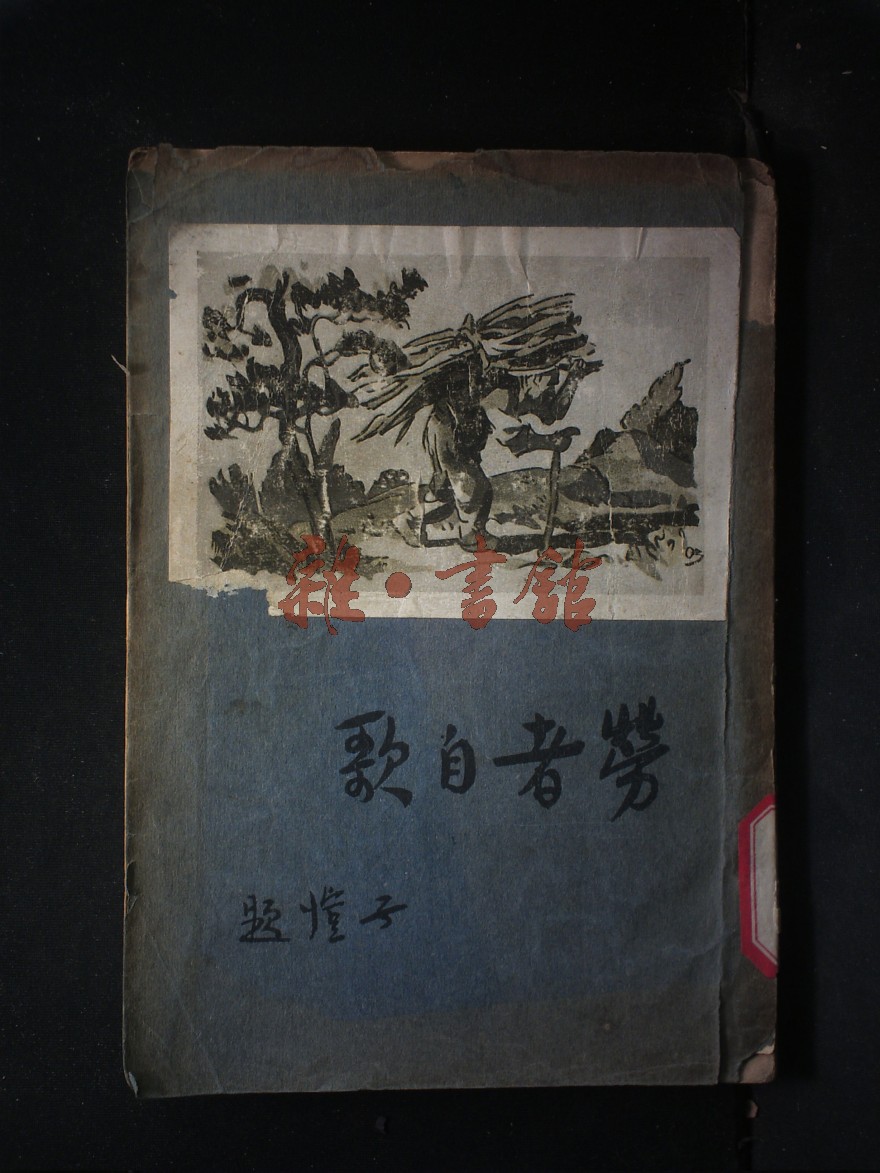 雜·書館
勞者自歌
子愷題